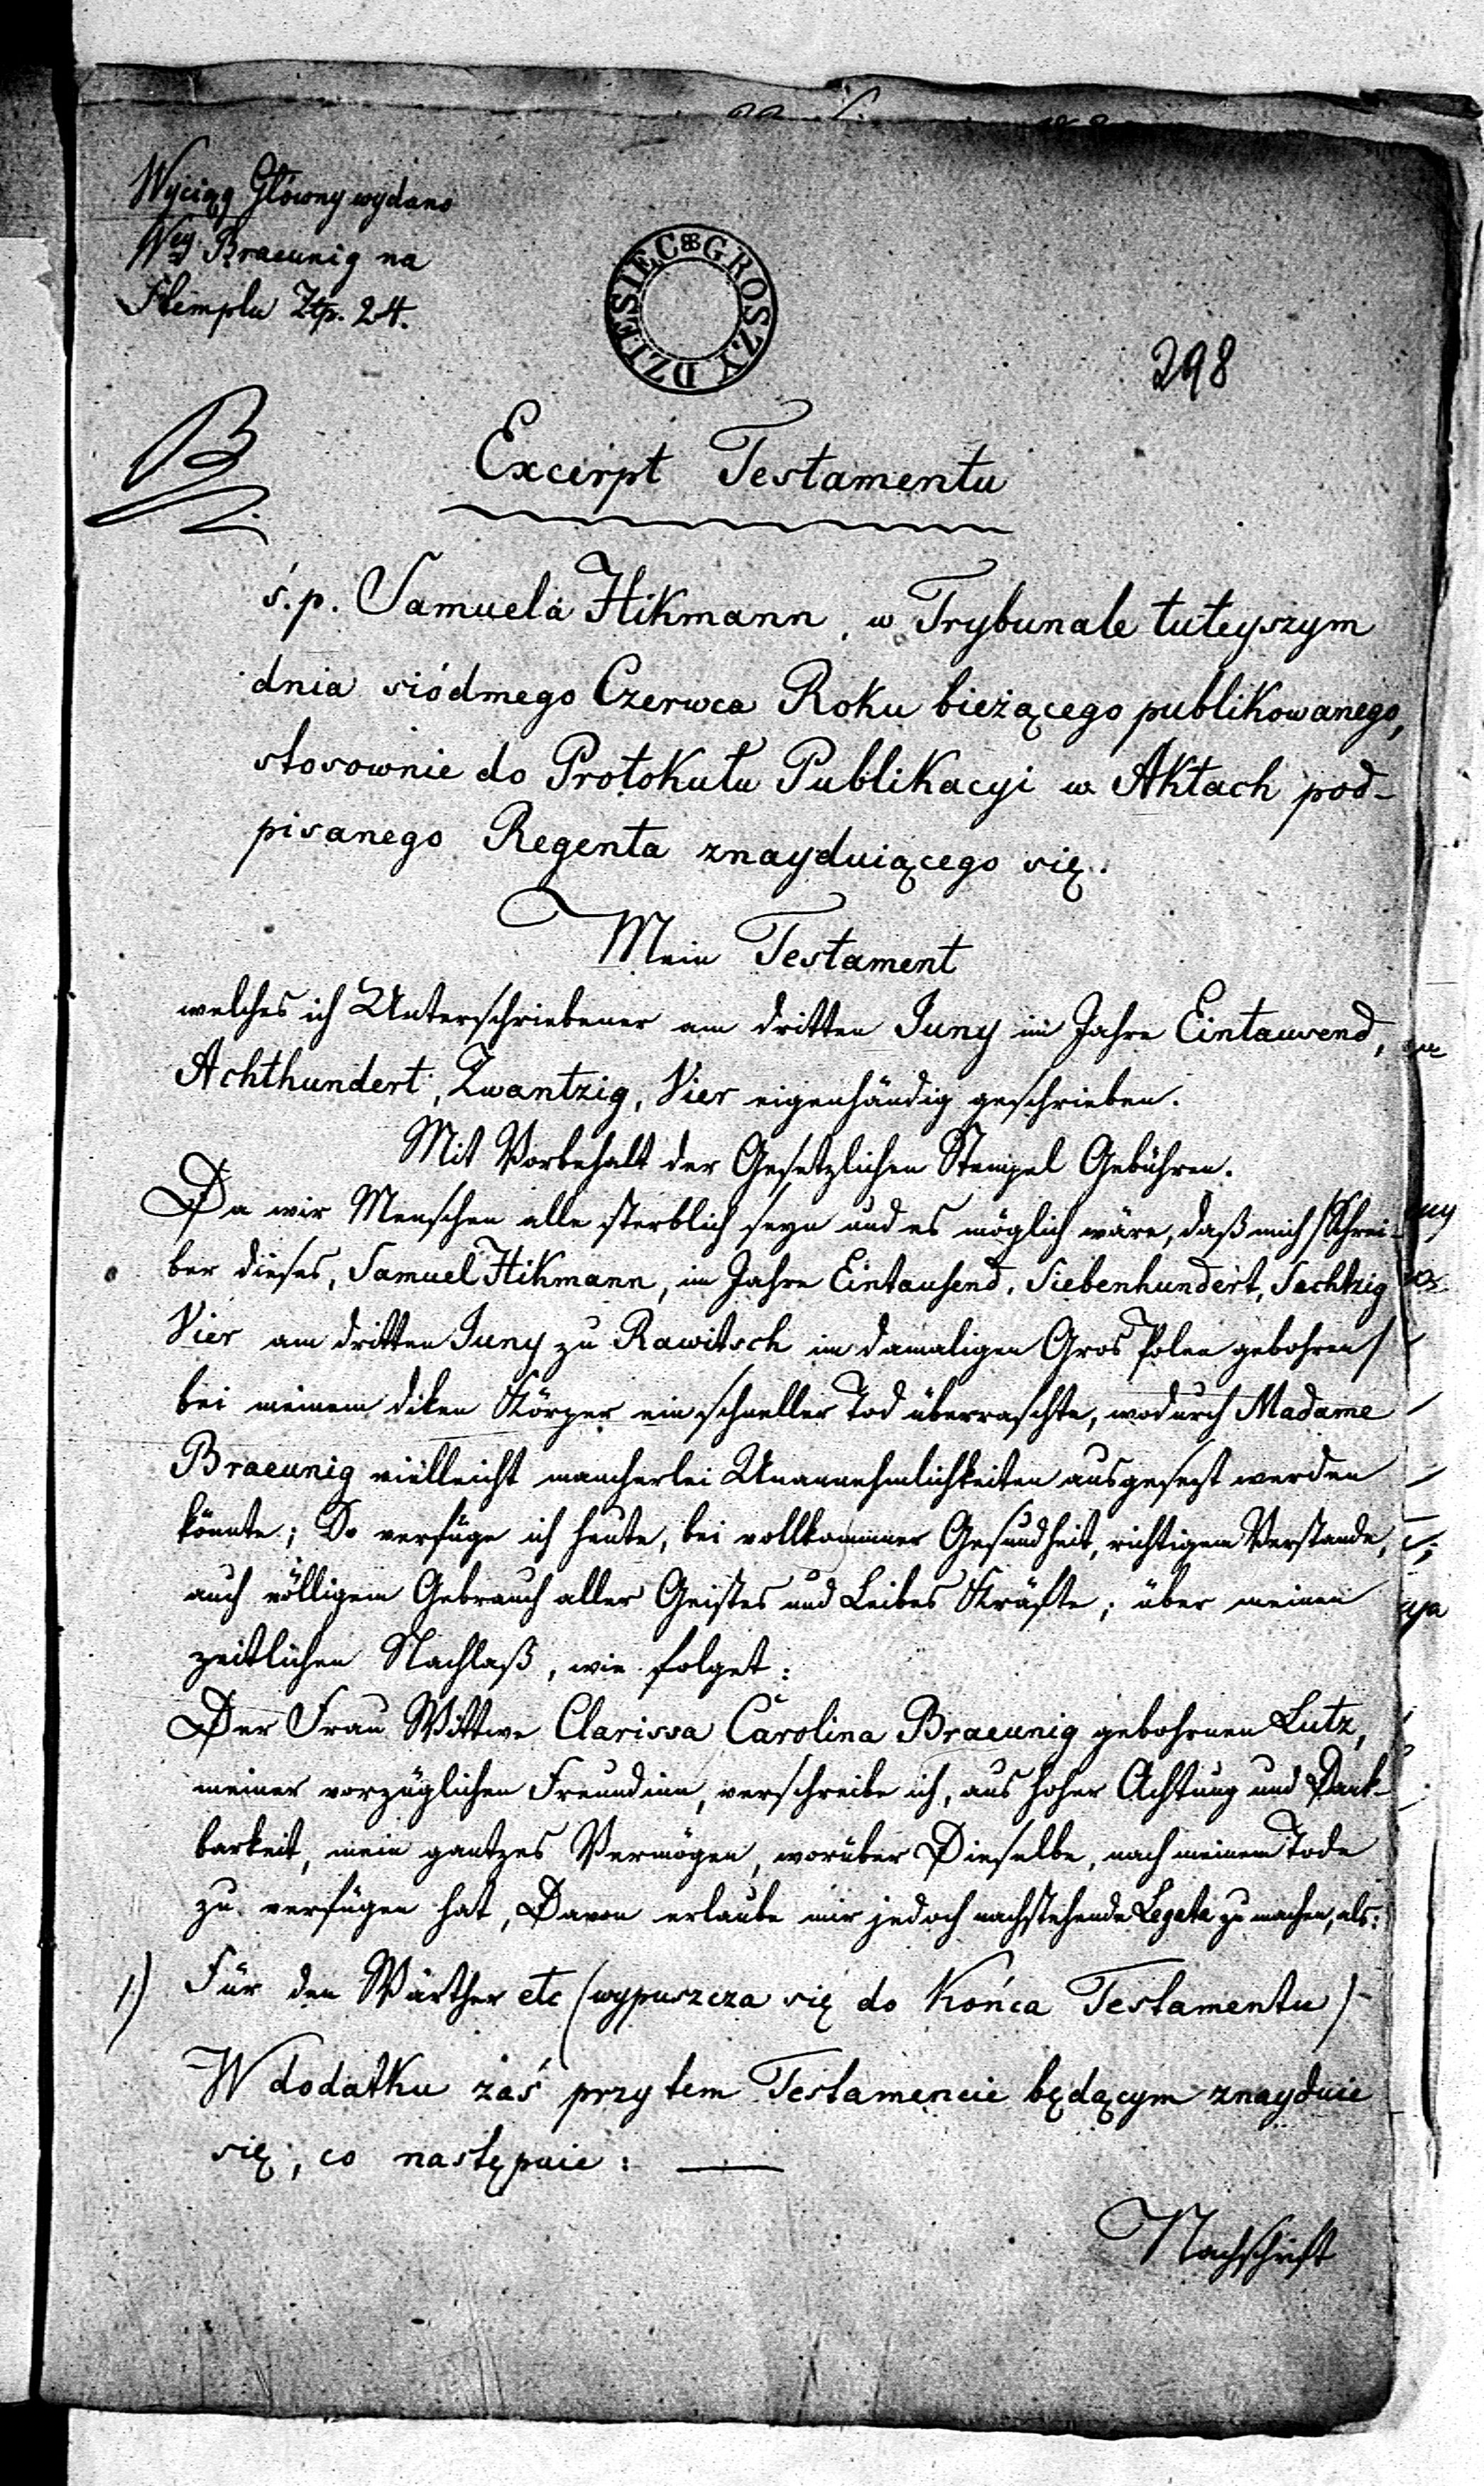 Wyciąg Główny wydano
Wey Braeunig na
Stemplu Ztp. 24.
DZIESIEC GROSZY
298
Excerpt Testamentu
ś.p. Samuela Hikmann, w Trybunale tuteyszym
dnia siódmego Czerwca Roku bieżącego publikowanego,
stosownie do Protokułu Publikacyi w Aktach pod-
pisanego Regenta znayduiącego się.
Mein Testament
welches ich Unterschriebener am dritten Juny im Jahre Eintausend,
Achthundert, Zwantzig, Vier eigenhändig geschrieben.
Mit Vorbehalt der Gesetzlichen Stempel Gebühren.
Da wir Menschen alle sterblich seyn und es möglich wäre, daß mich /Schrei-
ber dieses, Samuel Hikmann, im Jahre Eintausend, Siebenhundert, Sechtzig
Vier am dritten Juny zu Rawitsch im damaligen Gros Polen gebohren/
bei meinem diken Körper ein schneller Tod überraschte, wodurch Madame
Braeunig vielleicht mancherlei Unannehmlichkeiten ausgesezt werden
könnte; So verfüge ich heute, bei vollkommner Gesundheit, richtigem Verstande,
auch völligem Gebrauch aller Geistes und Leibes Kräfte; über meinen
zeitlichen Nachlaß, wie folget:
Der Frau Wittwe Clarissa Carolina Braeunig gebohrnen Lutz,
meiner vorzüglichen Freundinn, verschreibe ich, aus hoher Achtung und Dank-
barkeit, mein gantzes Vermögen, worüber Dieselbe, nach meinem Tode
zu verfügen hat, Davon erlaube mir jedoch nachstehende Legata zu machen, als:
1.) Für den Wärther etc (wypuszcza się do Końca Testamentu)
W dodatku zaś przy tem Testamencie będącym znayduie
się, co następuie:
Nachschrift